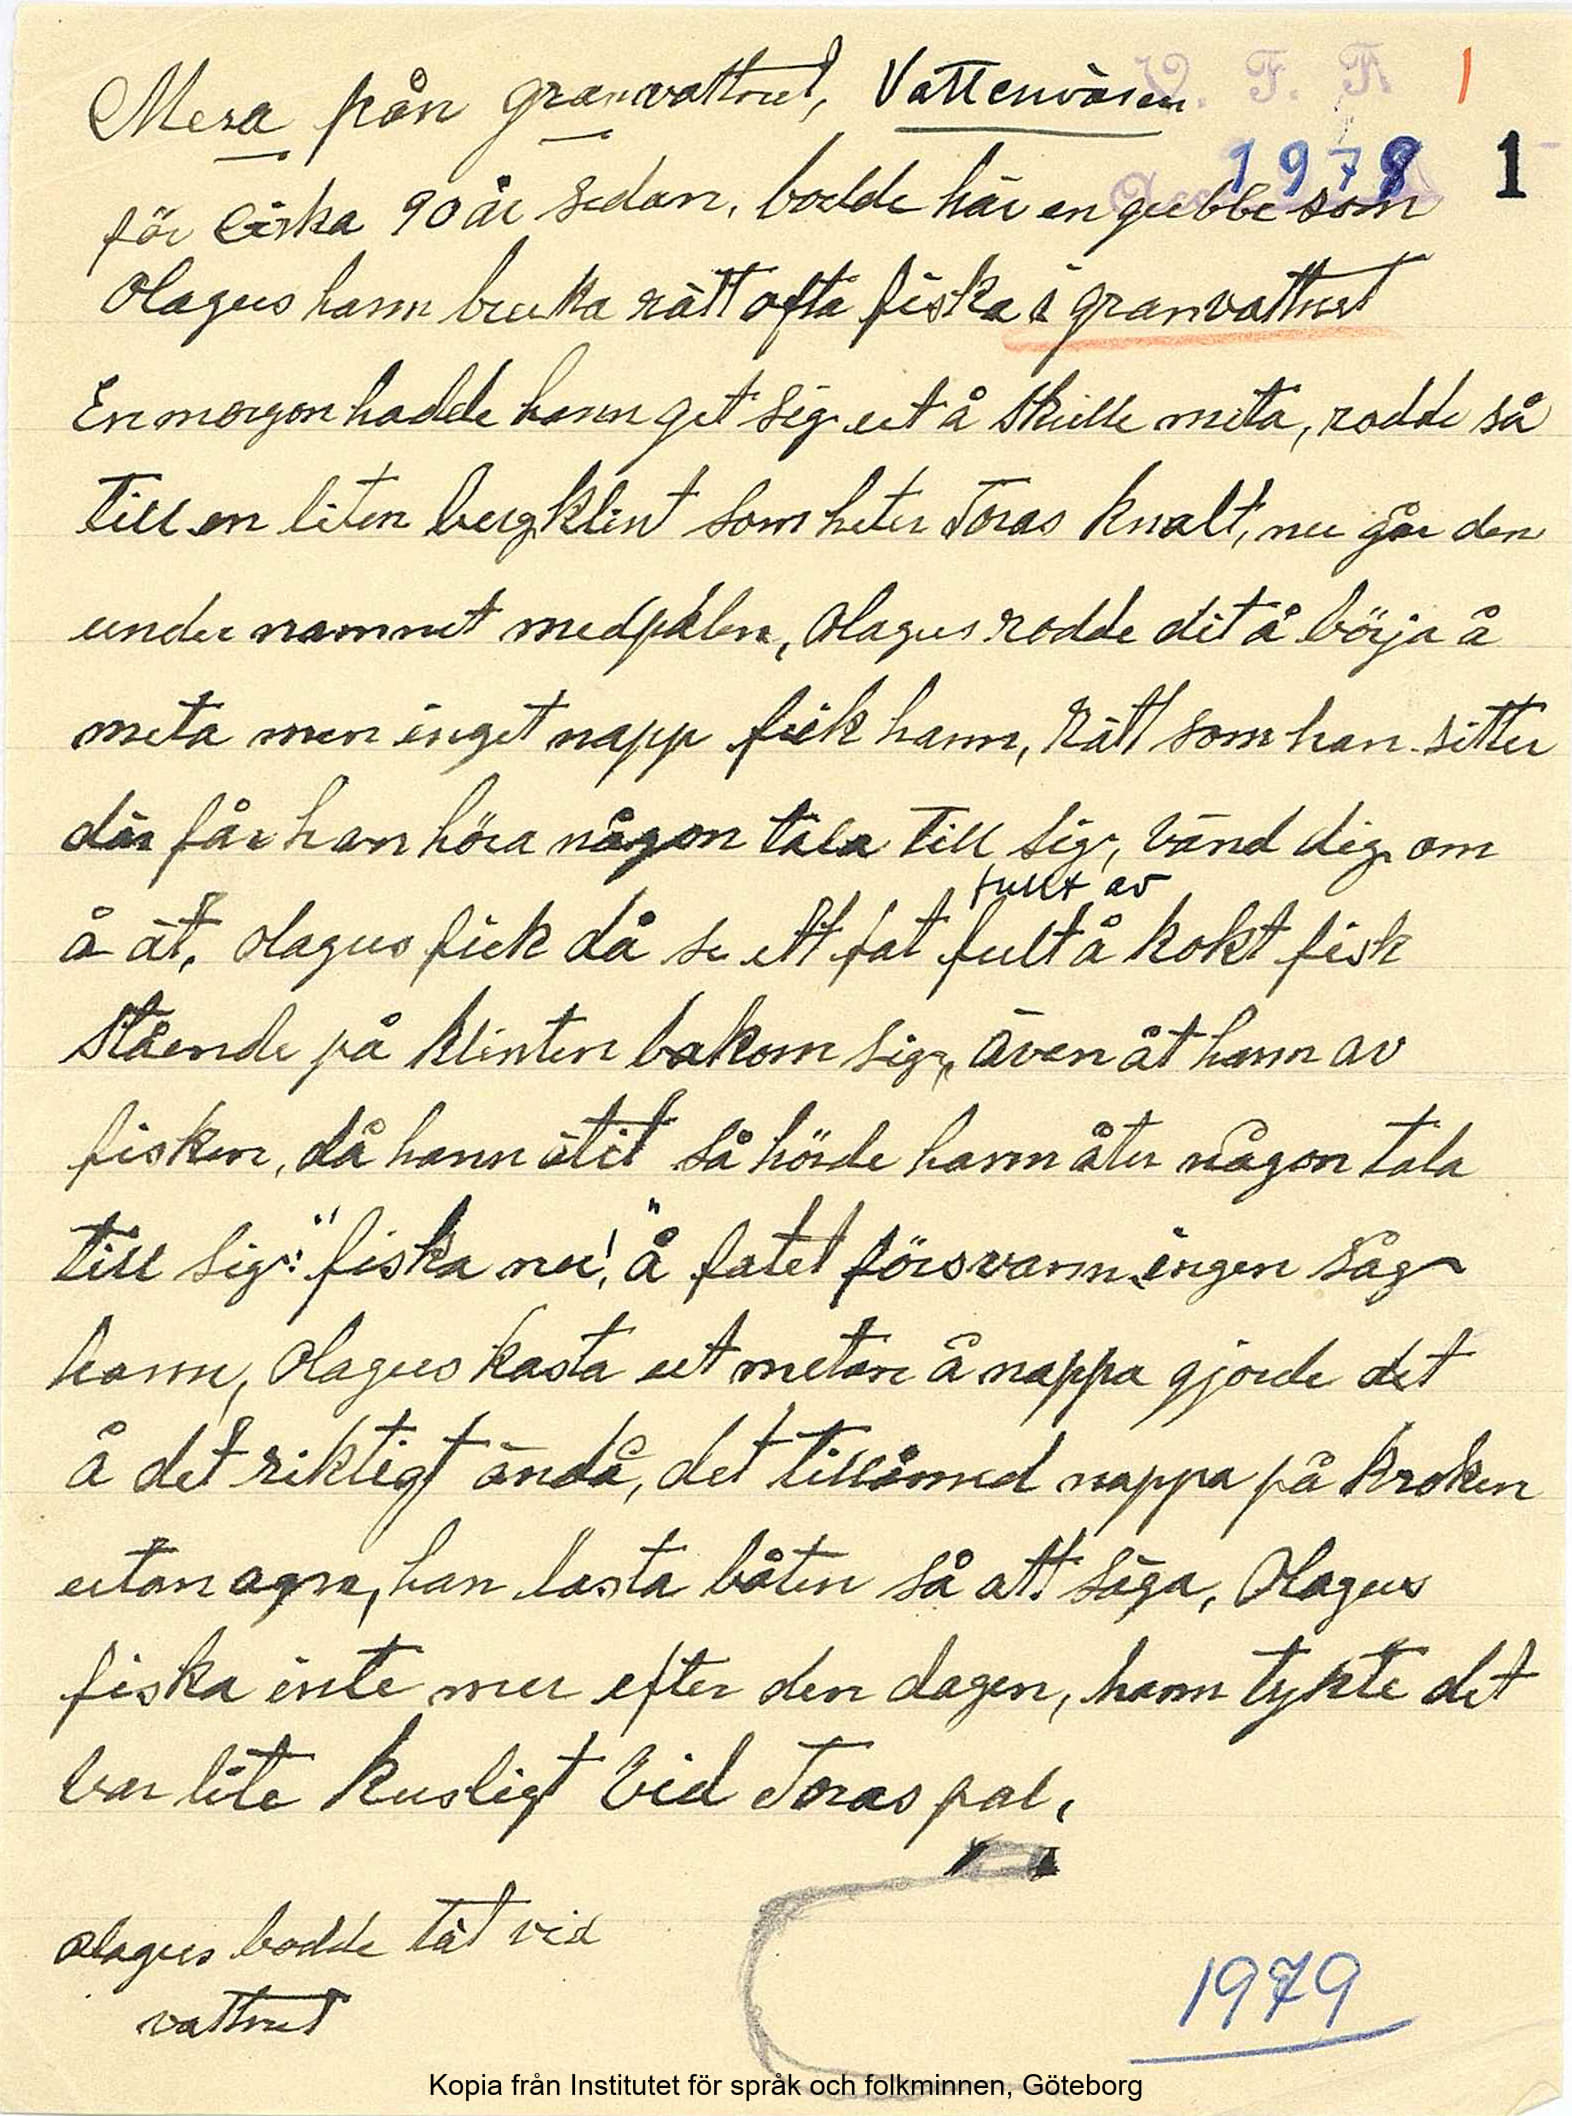 V. F. F. 1
Mera från granvattnet, Vattenväsen
1978 1
för Cirka 90 år sedan, bodde här en gubbe som
Olagus hann bruka rätt ofta fiska i granvattnet
En morgon hadde hann get sig ut å skulle meta, rodde så
till en liten bergklint som heter Toras knalt, nu går den
under namnet medpålen, Olagus rodde dit å börja å
meta men inget napp fick hann, rätt som han sitter
där får han höra någon tala till sig, vänd dig om
fullt av
å ät, olagus fick då se ett fat fult å kokt fisk
Stående på klinten bakom sig, även åt hann av
fisken, då hann ätit så hörde hann åter någon tala
till sig: "fiska nu!" å fatet försvann, ingen såg
hann, Olagus kasta ut metan å nappa gjorde det
å det riktigt ändå, det tillåmed nappa på kroken
utan agn, han lasta båten så att säga, Olagus
fiska inte mer efter den dagen, hann tykte det
var lite kusligt vid Toras pal,
olagus bodde tät vid
vattnet
1979
Kopia från Institutet för språk och folkminnen, Göteborg